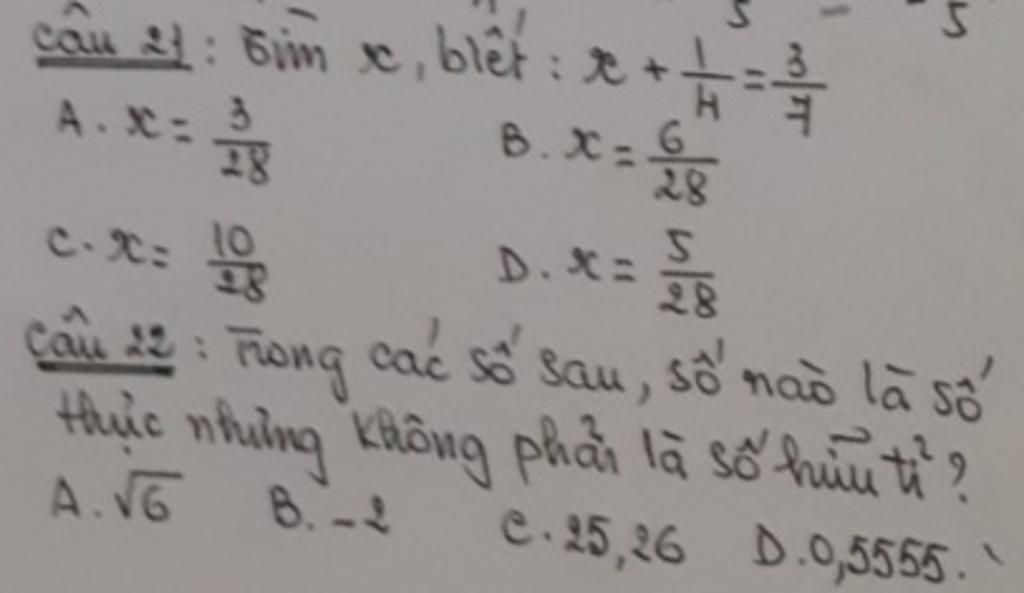 5 - 5
Câu 21: Tìm x, biết: x + 1/4 = 3/7
A. x = 3/28 B. x = 6/28
C. x = 10/28 D. x = 5/28
Câu 22: Trong các số sau, số nào là số
thực nhưng không phải là số hữu tỉ?
A. √6 B. -2 C. 25,26 D. 0,5555.